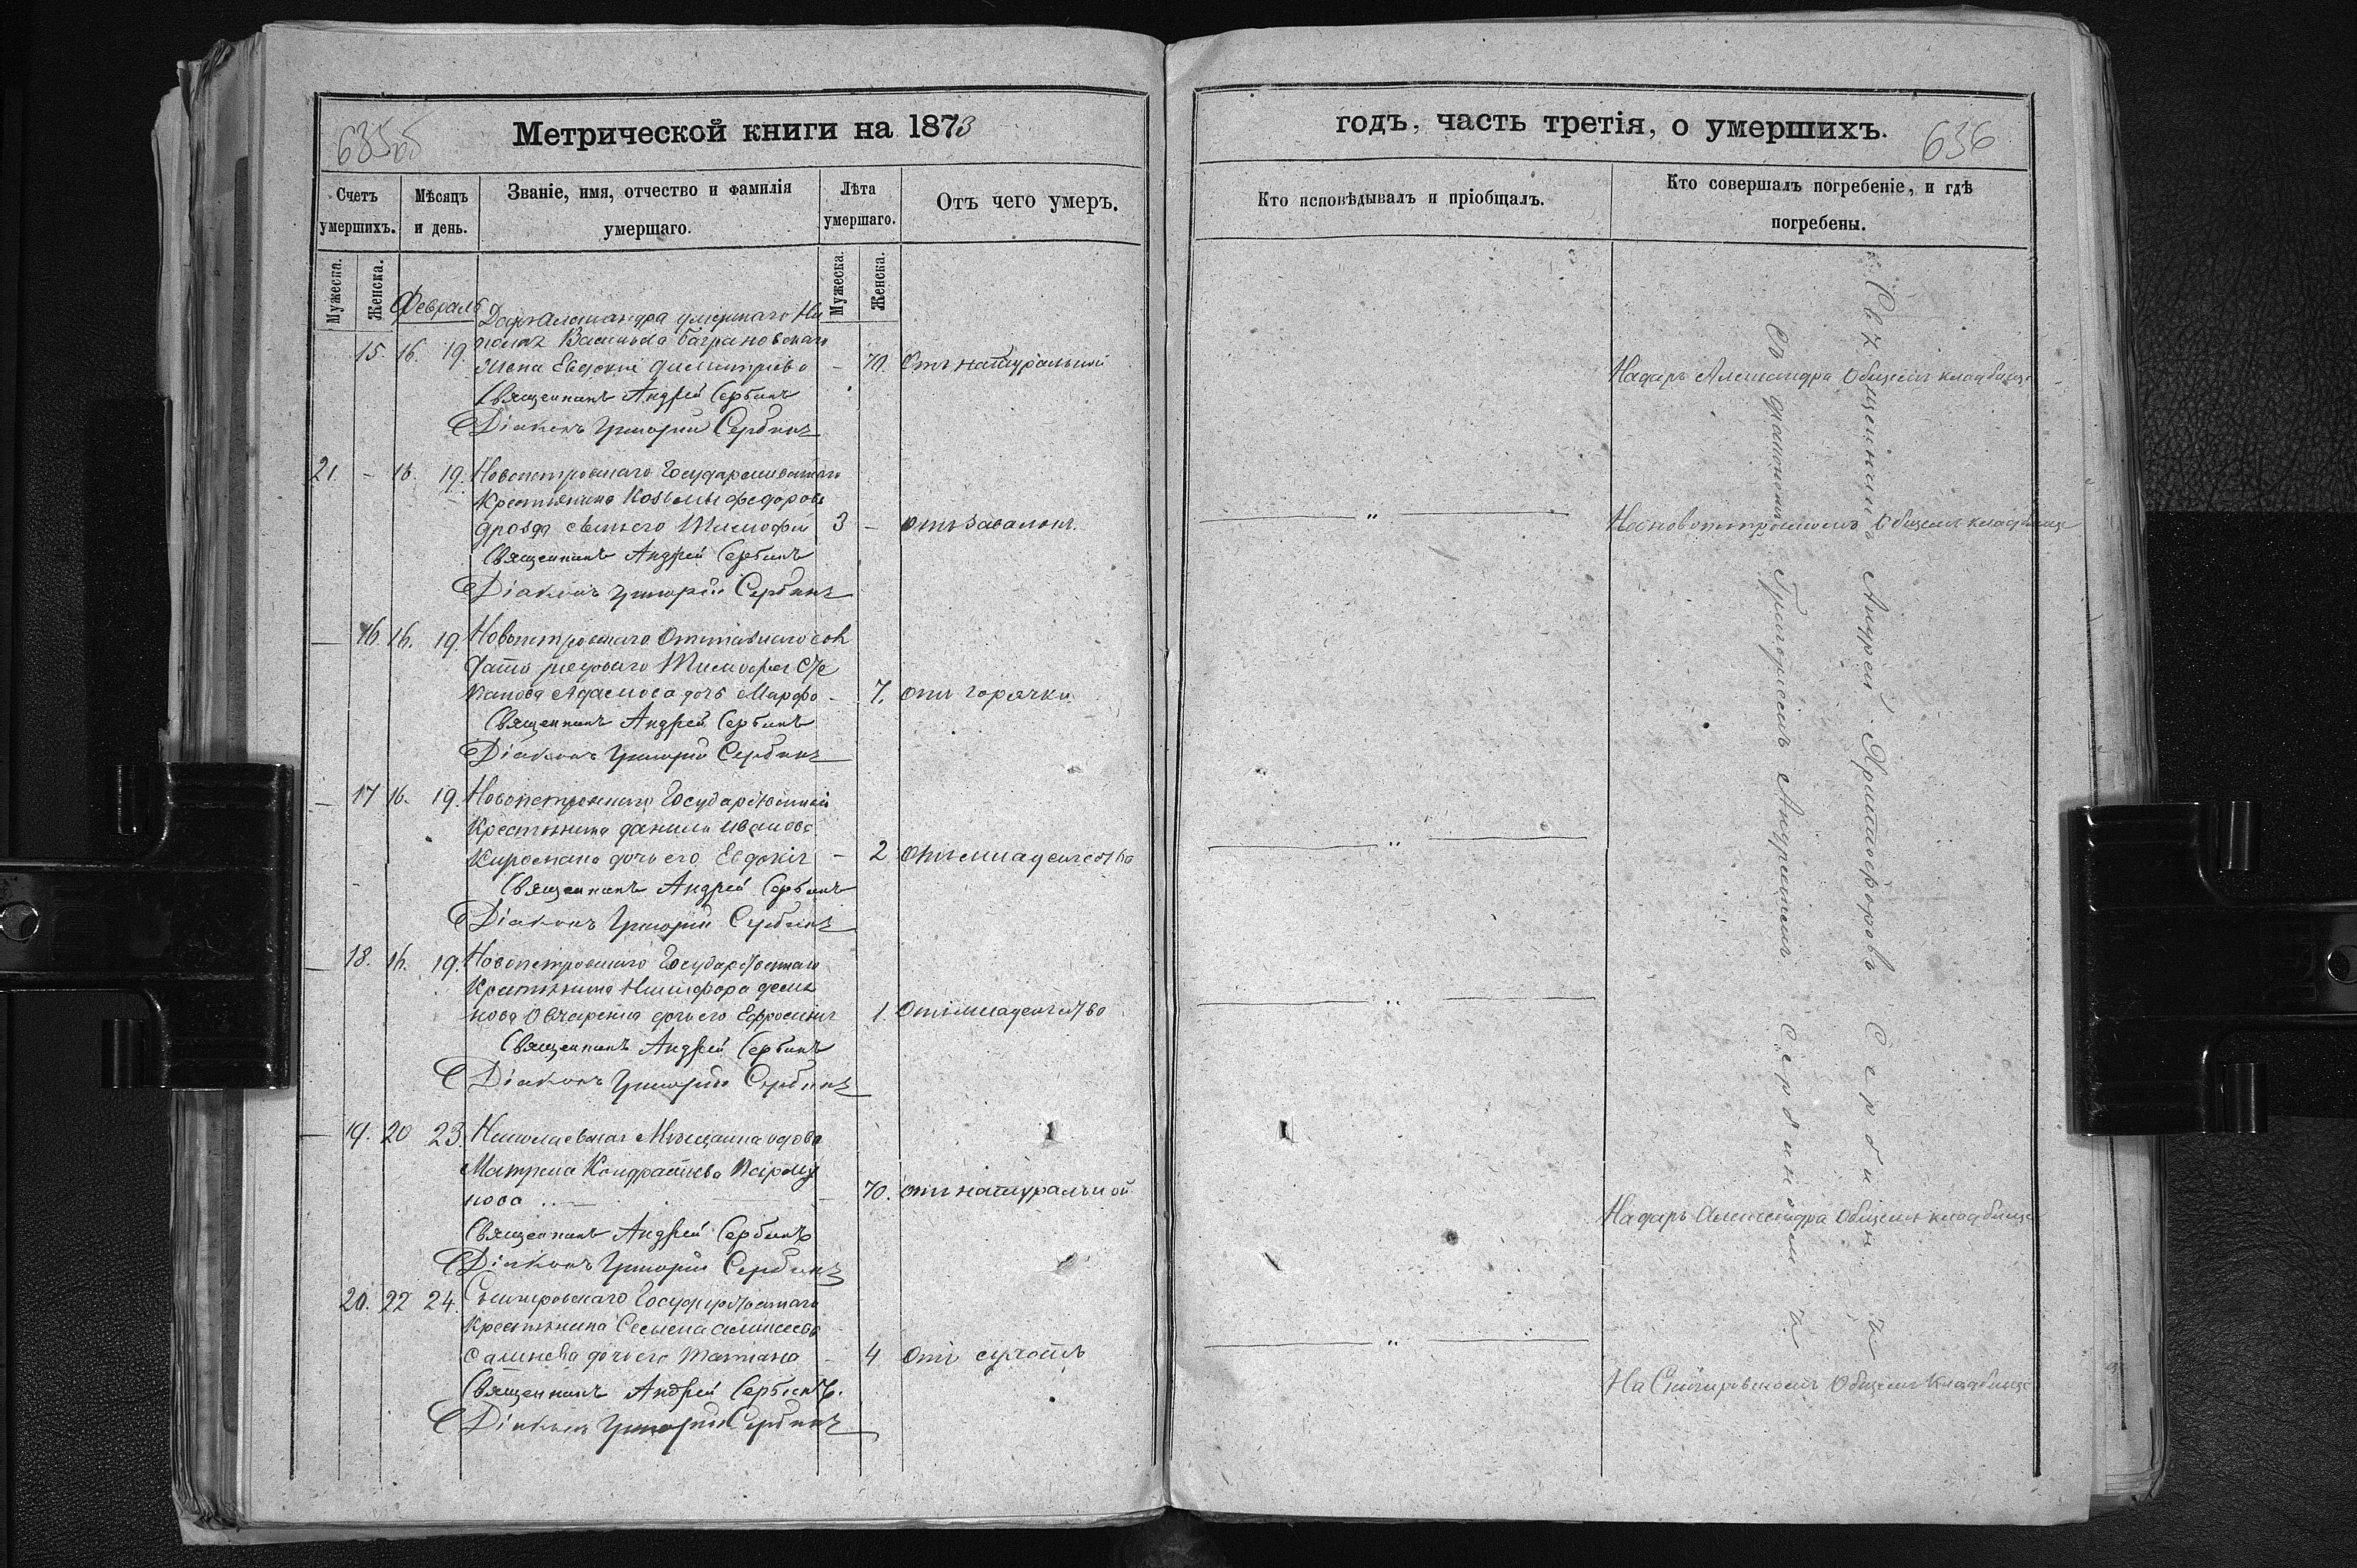 635об
Метрической книги на 1873
Счетъ умершихъ.
Мѣсяцъ и день.
Званіе, имя, отчество и фамилія умершаго.
Лѣта умершаго.
Отъ чего умеръ.
Мужеска.
Женска.
Мужеска.
Женска.
Февраль
Даръ Александра умершаго Ни
15. 16. 19. Васильева Баграновскаго
жена Евдокія Димитрiева - 70. Отъ натуральной
Священникъ Андрей Сербинъ
Діаконъ Григорій Сербинъ
21. - 16. 19. Новопетровскаго Государственнаго
Крестьянина Козьмы Федорова
Дрозда сынъ его Тимофей 3 - отъ завалокъ.
Священникъ Андрей Сербинъ
Діаконъ Григорій Сербинъ
— 16 16. 19. Новопетровскаго Отставнаго сол
дата рядоваго Тимофея Сте
панова Адамова дочь Марфа - 7. отъ горячки.
Священникъ Андрей Сербинъ
Діаконъ Григорій Сербинъ
— 17 16. 19. Новопетровскаго Государственнаго
Крестьянина Данила Иванова
дочь его Евдокія - 2 Отъ младенчества
Священникъ Андрей Сербинъ
Діаконъ Григорій Сербинъ
— 18. 16. 19. Новопетровскаго Государственнаго
Крестьянина Никифора Деми
нова Овчаренка дочь его Ефросинія 1. Отъ младенчества
Священникъ Андрей Сербинъ
Діаконъ Григорій Сербинъ
— 19. 20 23. Николаевская Мѣщанка вдова
Матрена Кондратьева
нова - 70. отъ натуральной
Священникъ Андрей Сербинъ
Діаконъ Григорій Сербинъ
20. 22 24. Снигировскаго Государственнаго
Крестьянина Семена Алексеева
дочь его Татіана - 4 Отъ сухотъ
Священникъ Андрей Сербинъ.
Діаконъ Григорій Сербинъ
годъ, часть третія, о умершихъ.
636
Кто исповѣдывалъ и пріобщалъ.
Кто совершалъ погребеніе, и гдѣ погребены.
На даръ Александра Общемъ кладбище
— " — На новопетровскомъ Общемъ кладбище
— " —
— " —
На даръ Александра Общемъ кладбище
— " —
На Снигировскомъ Общемъ Кладбище
Священникъ Андрей Христофоровъ Сербинъ
Съ діакономъ Григоріемъ Андреевымъ Сербиномъ